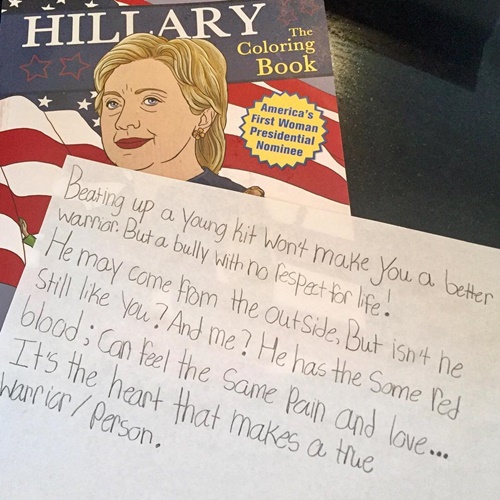 HILLARY
The
Coloring
Book
America's
First Woman
Presidential
Nominee
Beating up a young kit won't make you a better
warrior. But a bully with no respect for life!
He may come from the outside, But isn't he
still like you? And me? He has the same red
blood; Can feel the same pain and love...
It's the heart that makes a true
warrior/person.